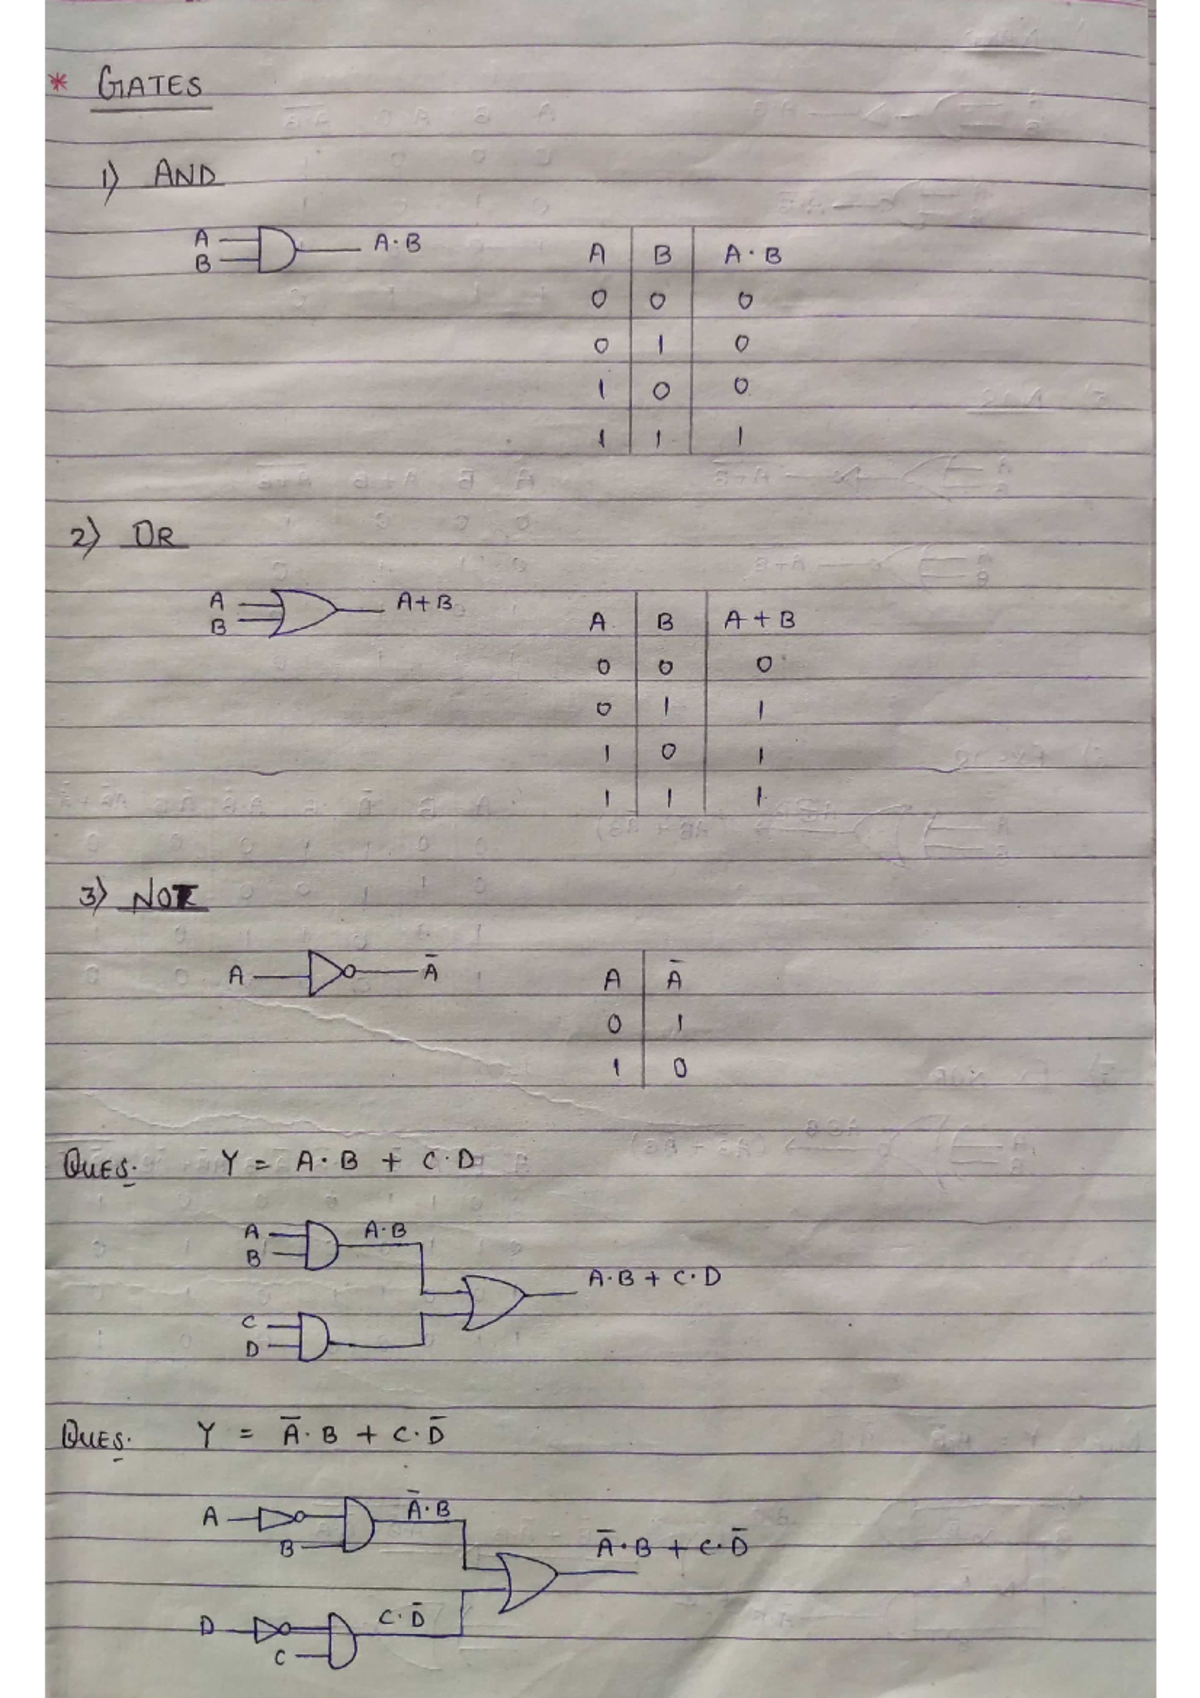 * GATES
1) AND
A
B
A·B
A B A·B
0 0 0
0 1 0
1 0 0
1 1 1
2) OR
A
B
A+B
A B A+B
0 0 0
0 1 1
1 0 1
1 1 1
3) NOT
A Ā
A Ā
0 1
1 0
QUES. Y = A·B + C·D
A
B
A·B
A·B + C·D
C
D
QUES. Y = Ā·B + C·D̄
A
B
Ā·B
Ā·B + C·D̄
D
C
C·D̄